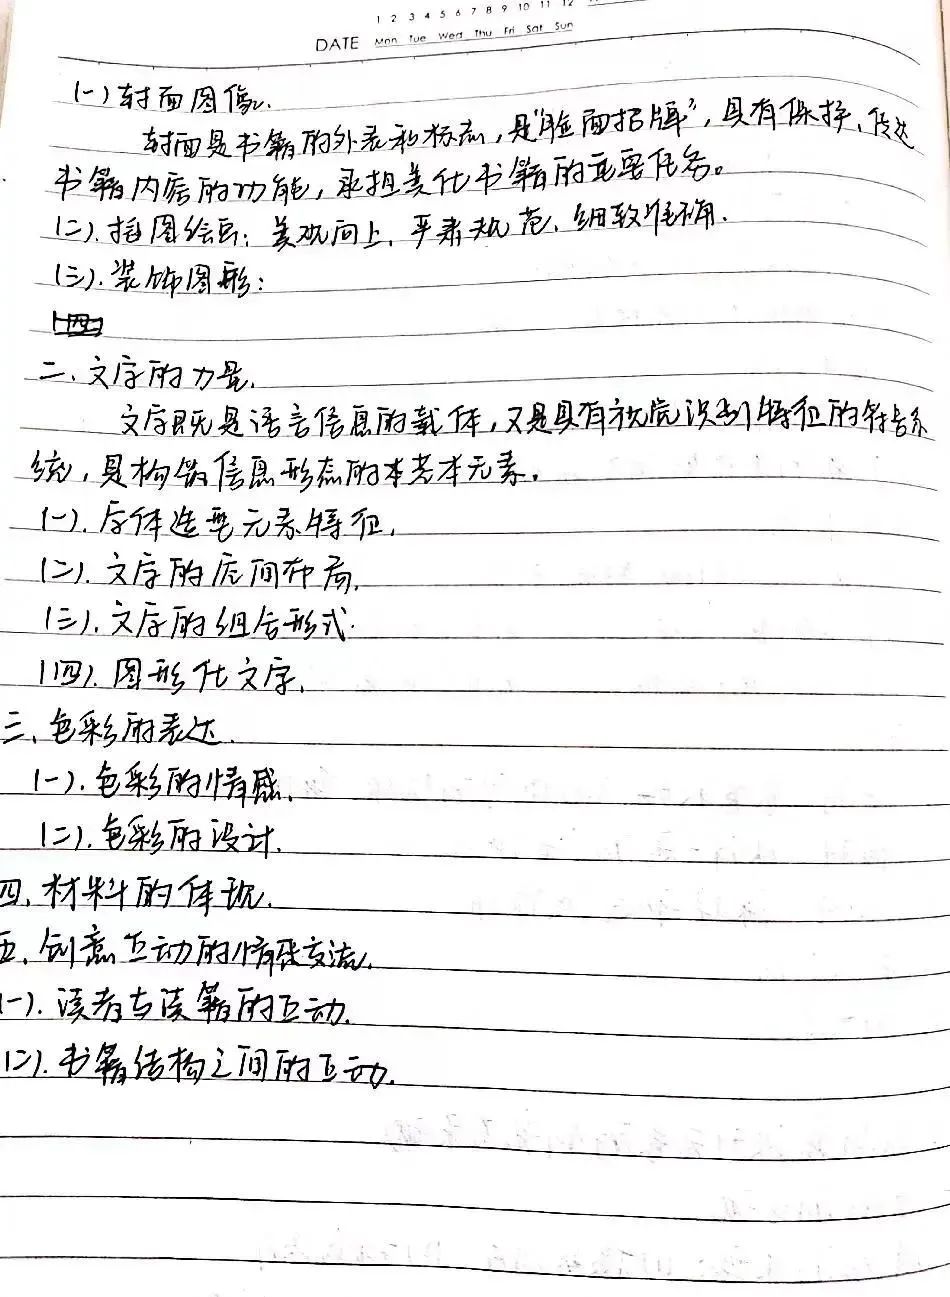 1 2 3 4 5 6 7 8 9 10 11 12
DATE Mon Tue Wed Thu Fri Sat Sun
(一)封面图像.
封面是书籍的外表和标志,是“脸面招牌”,具有保护、传达
书籍内容的功能,承担美化书籍的重要任务。
(二).插图绘画:美观向上、严肃规范、细致准确.
(三).装饰图形:
二、文字的力量.
文字既是语言信息的载体,又是具有视觉识别特征的符号系
统,是构筑信息形态的本基本元素。
(一).字体造型元素特征.
(二).文字的空间布局.
(三).文字的组合形式.
(四).图形化文字.
三、色彩的表达.
(一).色彩的情感.
(二).色彩的设计.
四、材料的体现.
五、创意互动的情感交流.
(一).读者与读籍的互动.
(二).书籍结构之间的互动.